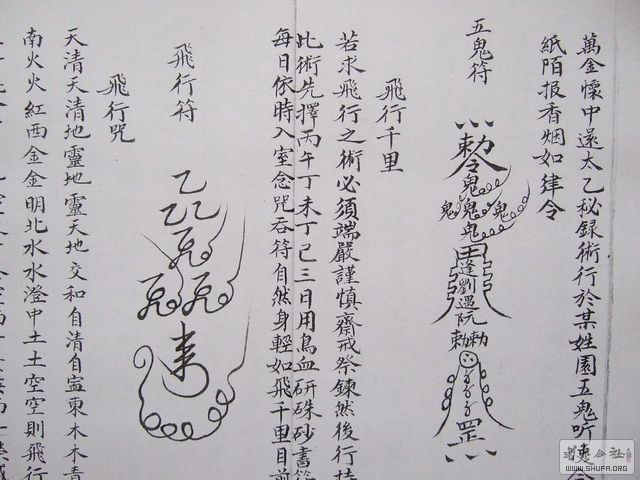 萬金懷中還太乙秘録術行於某姓園五鬼听使令
紙陌报香烟如律令
五鬼符
勅令
鬼
鬼鬼鬼
鬼
逢劉遇阮
勅勅
罡
飛行千里
若求飛行之術必須端嚴謹慎齋戒祭鍊然後行持
此術先擇丙午丁未丁巳三日用鳥血研硃砂書符
每日依時入室念咒吞符自然身輕如飛千里目前
飛行符
乙
乙乙
飛行咒
天清天清地靈地靈天地交和自清自寍東木木青
南火火紅西金金明北水水澄中土土空空則飛行
WWW.SHUFA.ORG